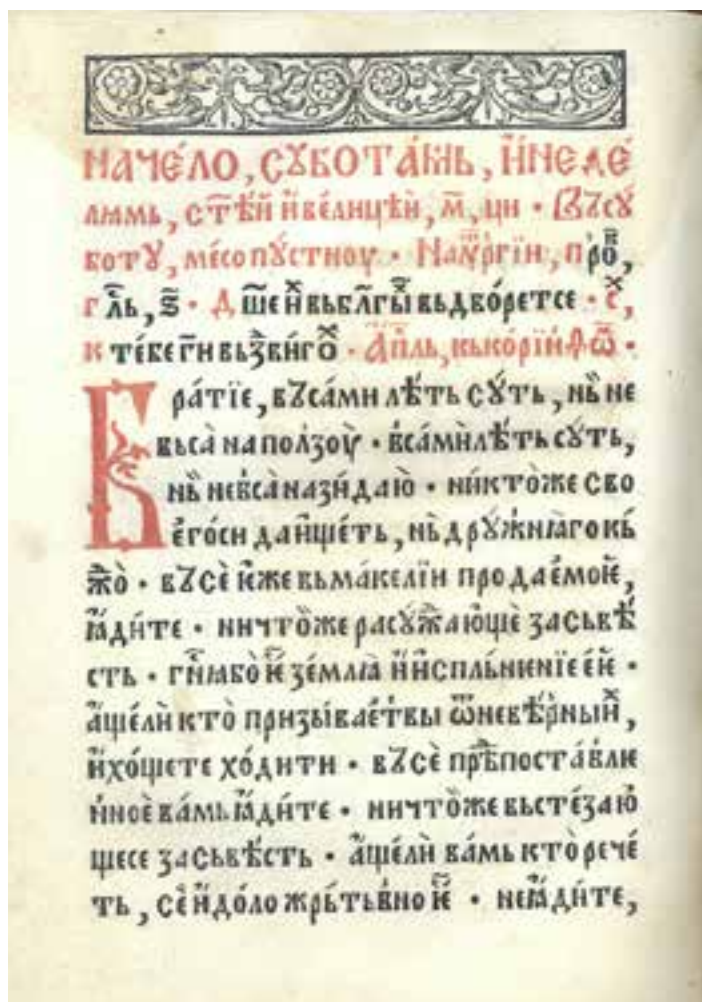 НАЧЕ́ЛО, СꙊБОТА́МЬ, Й НЕДЕ́
ЛꙖМЬ, СТЕ́Й Й ВЕ́ЛИЦЕЙ, М҃, ЦИ · Въ сꙋ
ботꙋ, ме́сопꙋ́стноу · На лꙋ҃ргїи, про҃к,
гл҃ь, ѕ҃ · Дш҃е й вь бл҃гы́ вьдво́ретсе · с҃х,
к те́бе г҃и вьзⷣви́го · А҆п҃ль, кь ко́рїнѳѡ҃ ·
Бра́тїе, въса́ ми лѣ́ть сꙋ́ть, нь̀ не
вьса̀ на по́лзоу · вса́ мѝ лѣ́ть сꙋ́ть,
нь̀ не вса̀ на зи́даю · никто̀же сво
е́го си да и҆́щеть, нь̀ дрꙋ́жнꙗго кь
ж҃о · въсѐ ѥ҆́же вь ма́келїи прода́емоѥ,
ꙗ҆ди́те · ничто̀же расꙋж҃аю́щѐ за сьвѣ́
сть · гн҃ꙗ бо̀ ѥ҃ зе́млꙗ й и҆спльне́нїе е́ѥ ·
а҆́ще лѝ кто̀ призы́вает вы ѿ невѣ́рный,
й хо́щете хо́дити · въсѐ прѣⷣпоста́влѥ
нноѐ ва́мь ꙗ҆ди́те · ничто̀же вьсте́заю
щесе за сьвѣ́сть · а҆́ще лѝ ва́мь кто̀ рече́
ть, сѐ и҆́доло жрьтьвно ѥ҃ · не ꙗ҆ди́те,